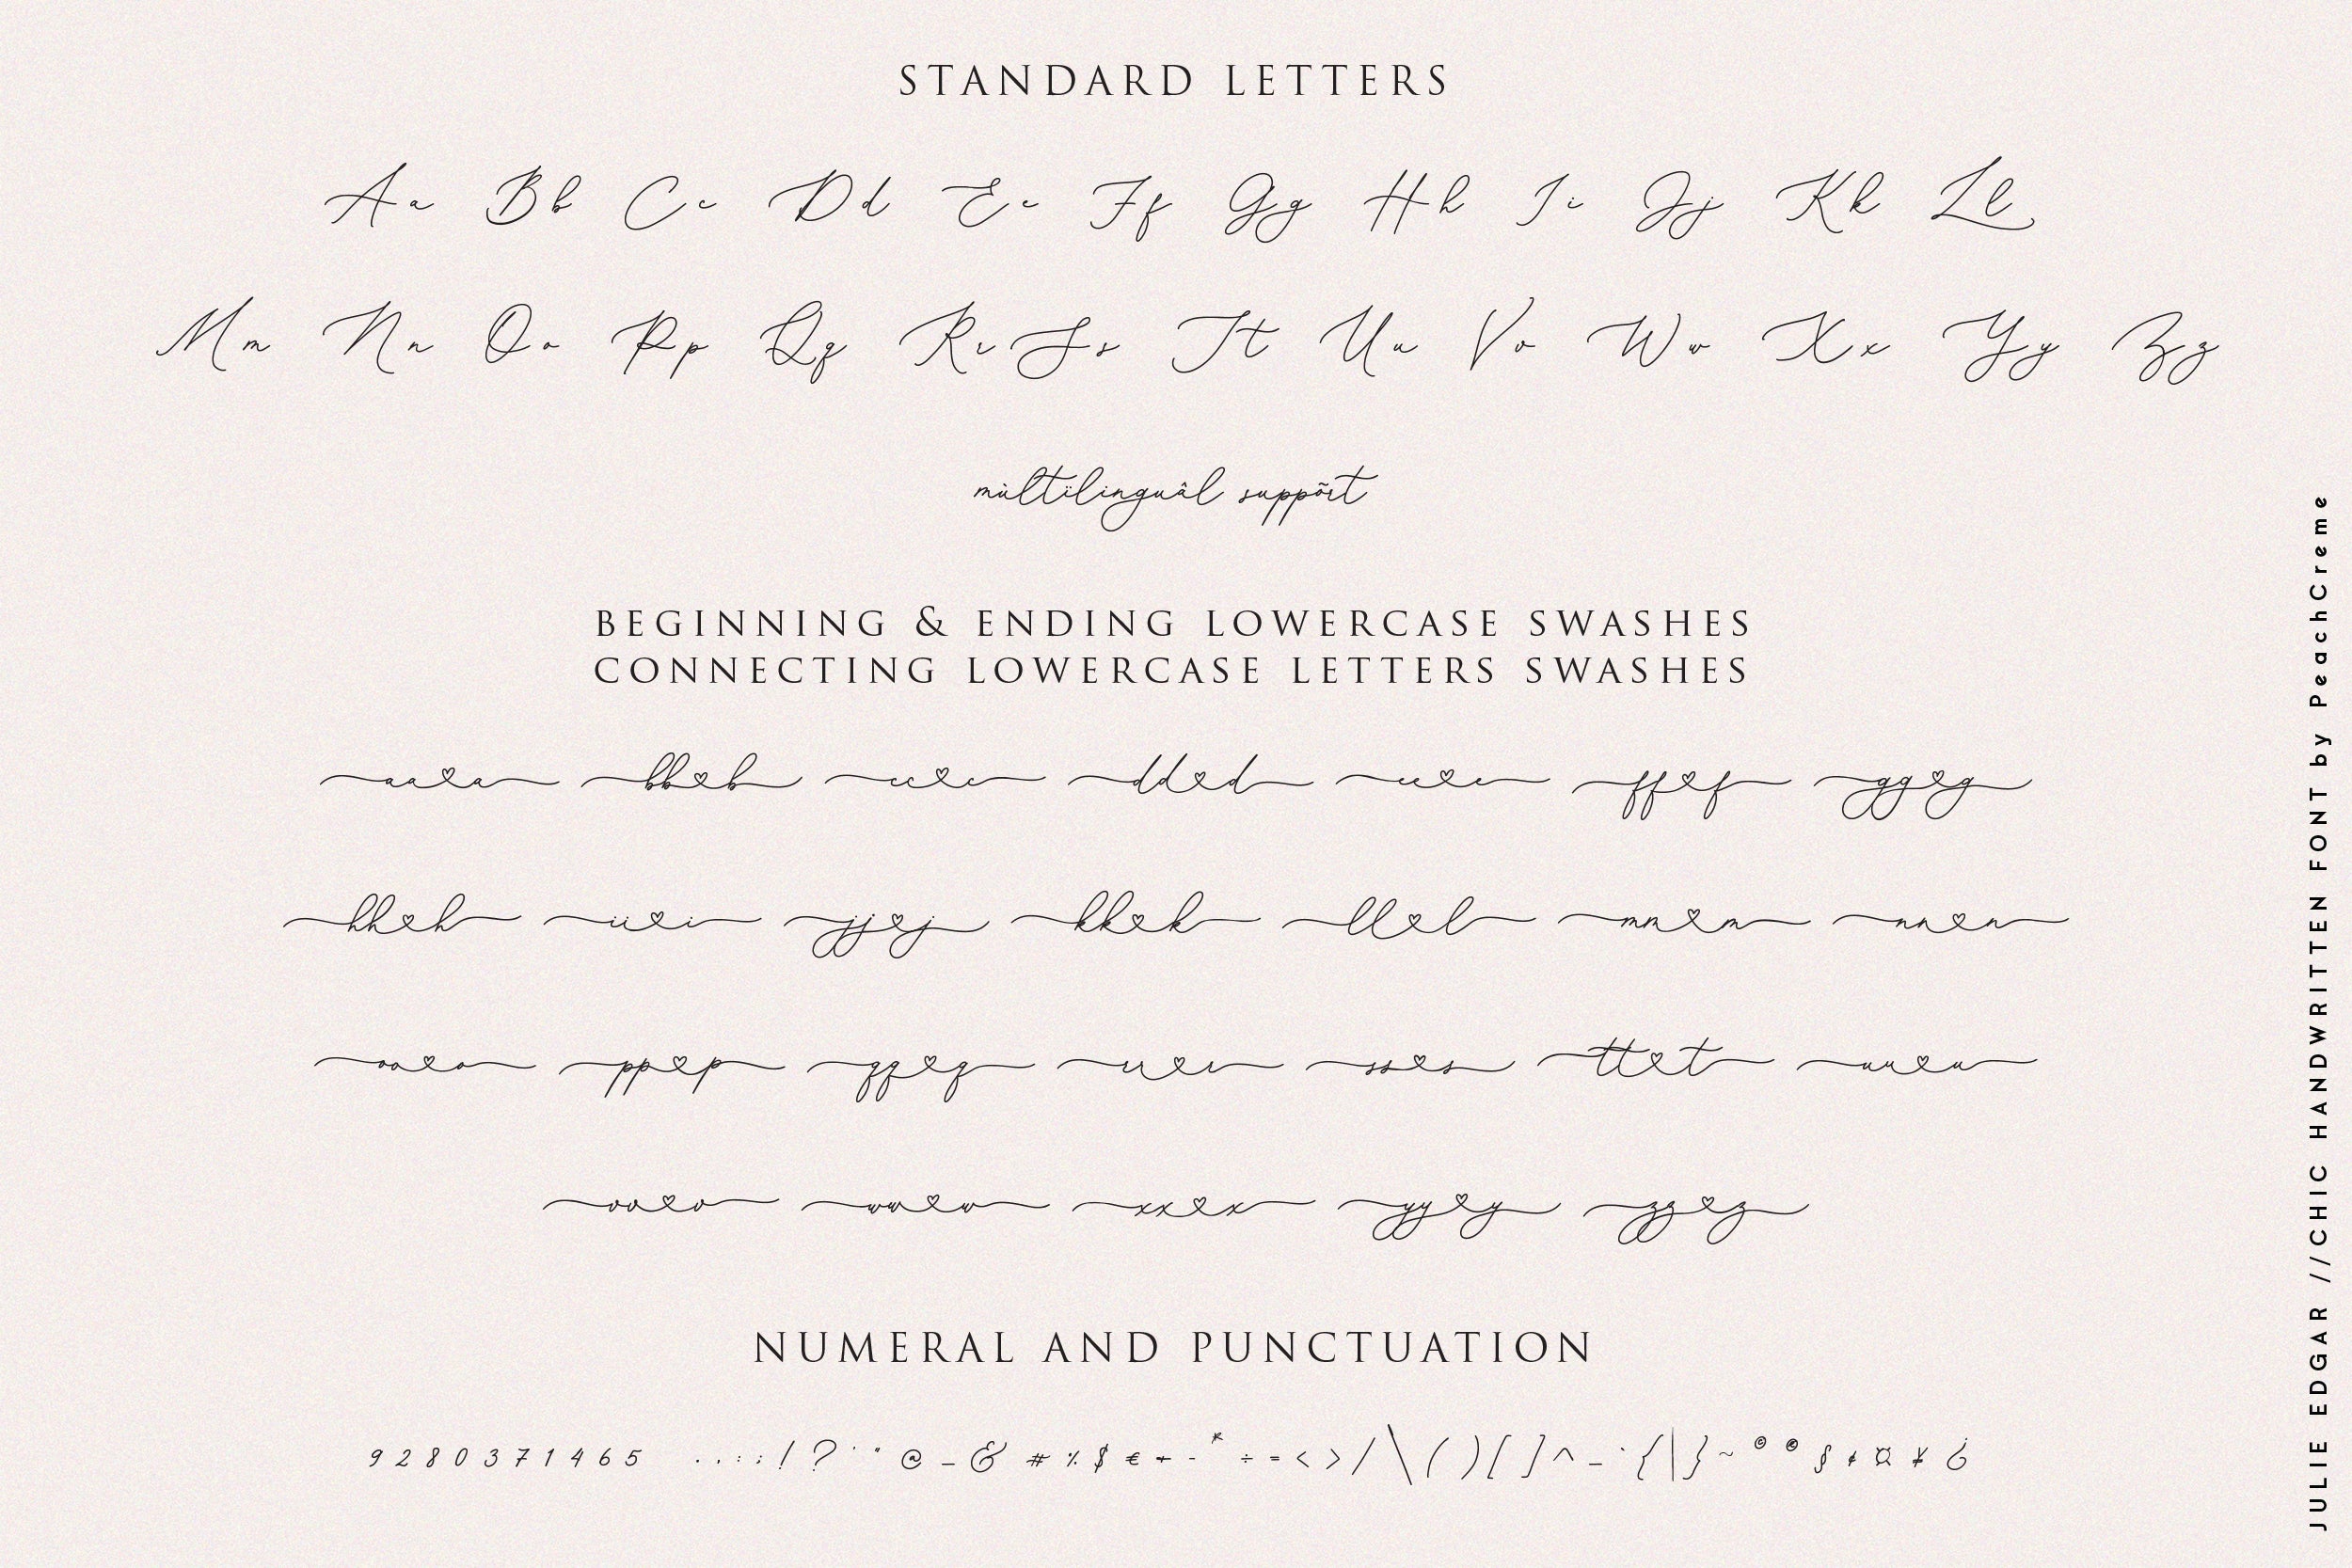 STANDARD LETTERS
Aa Bb Cc Dd Ee Ff Gg Hh Ii Jj Kk Ll
Mm Nn Oo Pp Qq Rr Ss Tt Uu Vv Ww Xx Yy Zz
mùltïlinguâl suppõrt
BEGINNING & ENDING LOWERCASE SWASHES
CONNECTING LOWERCASE LETTERS SWASHES
aa♡a bb♡b cc♡c dd♡d ee♡e ff♡f gg♡g
hh♡h ii♡i jj♡j kk♡k ll♡l mm♡m nn♡n
oo♡o pp♡p qq♡q rr♡r ss♡s tt♡t uu♡u
vv♡v ww♡w xx♡x yy♡y zz♡z
NUMERAL AND PUNCTUATION
9 2 8 0 3 7 1 4 6 5 . , : ; ! ? ' " @ _ & # % $ € + - * ÷ = < > / \ ( ) [ ] ^ _ ` { | } ~ © ® § ¢ ¤ ¥ ¿
JULIE EDGAR //CHIC HANDWRITTEN FONT by PeachCreme